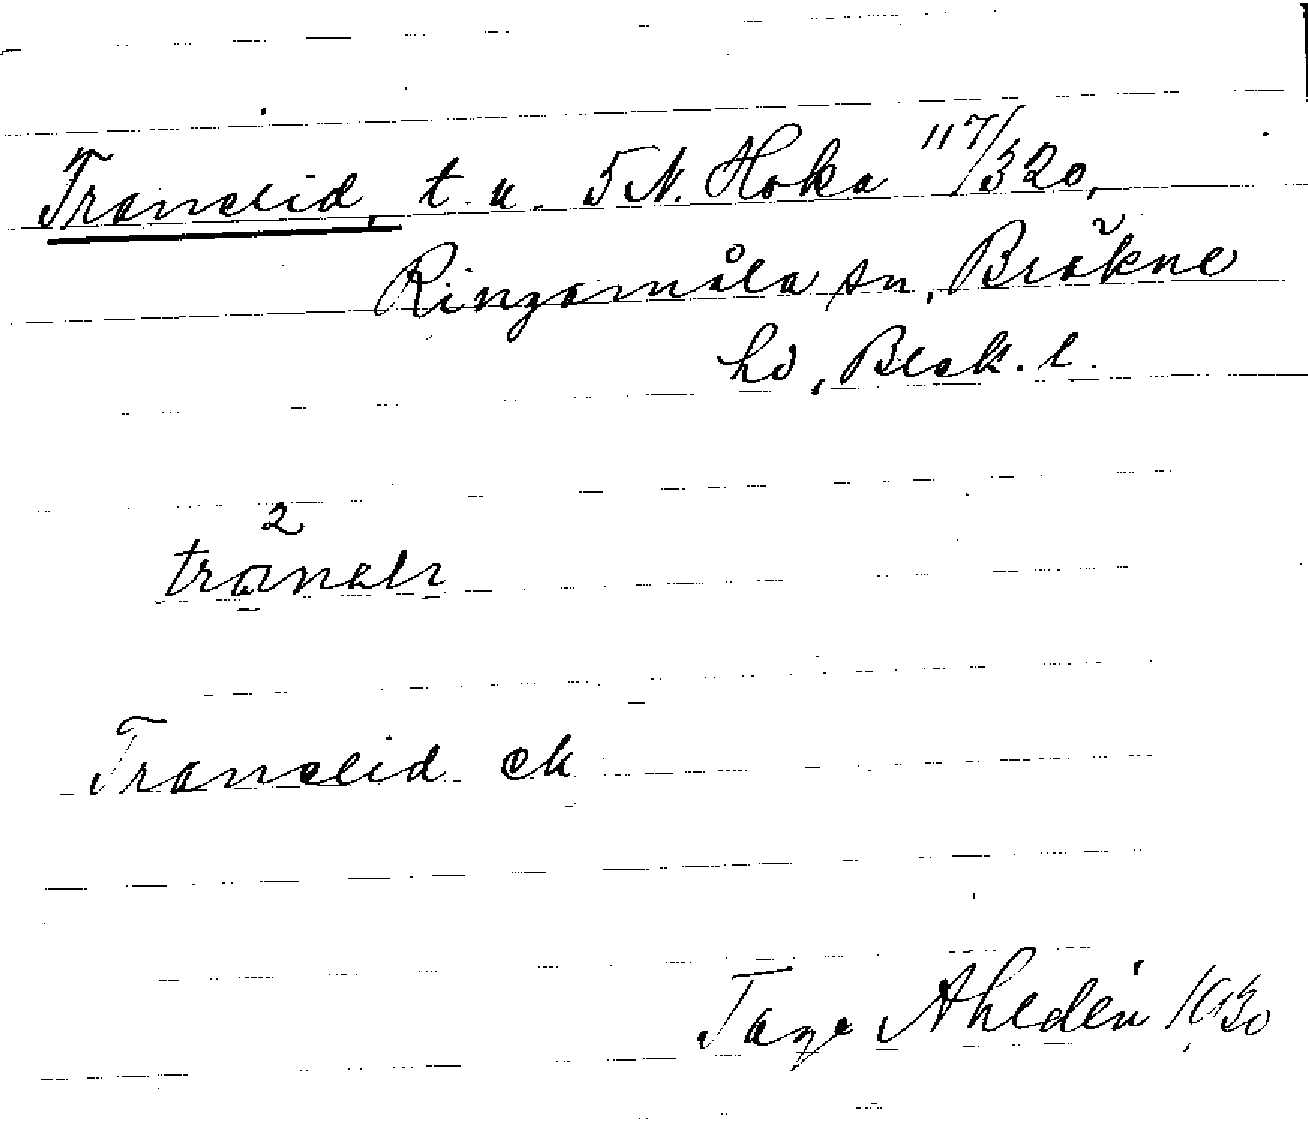 Tranelid, t. u. 5 N. Hoka 117/320,
Ringamåla sn, Bräkne
hd, Blek. l.
2
Tranelid ek
Tage Ahldén 1930